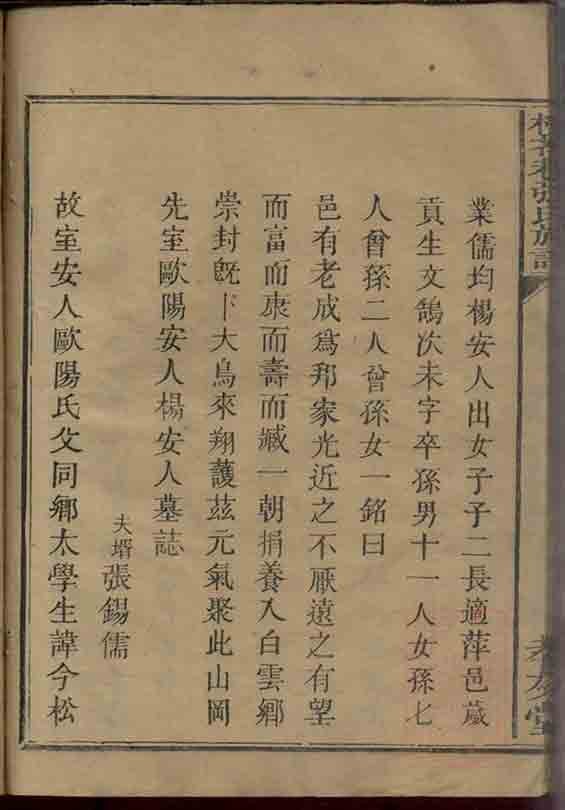 張氏族譜
孝友堂
業儒均楊安人出女子子二長適萍邑歲
貢生文鵠次未字卒孫男十一人女孫七
人曾孫二人曾孫女一銘曰
邑有老成爲邦家光近之不厭遠之有望
而富而康而壽而臧一朝捐養入白雲鄉
崇封旣卜大鳥來翔護茲元氣聚此山岡
先室歐陽安人楊安人墓誌
夫壻張錫儒
故室安人歐陽氏父同鄉太學生諱今松